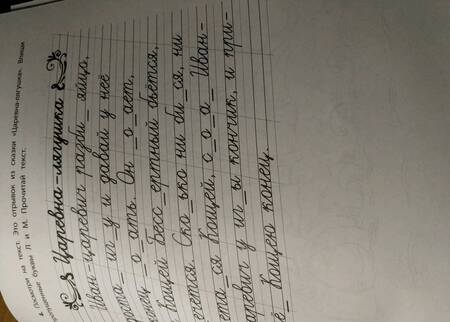 4. Посмотри на текст. Это отрывок из сказки «Царевна-лягушка». Впиши
пропущенные буквы Л и М. Прочитай текст.
Царевна-лягушка
Иван-царевич разби_ яйцо,
доста_ иг_у и давай у неё
конец _о_ать. Он _о_ает,
Кощей Бесс_ертный бьётся,
мечется. Ско_ько ни би_ся, ни
мета_ся Кощей, с_о_а_ Иван-
царевич у иг_ы кончик, и при-
шё_ Кощею конец.